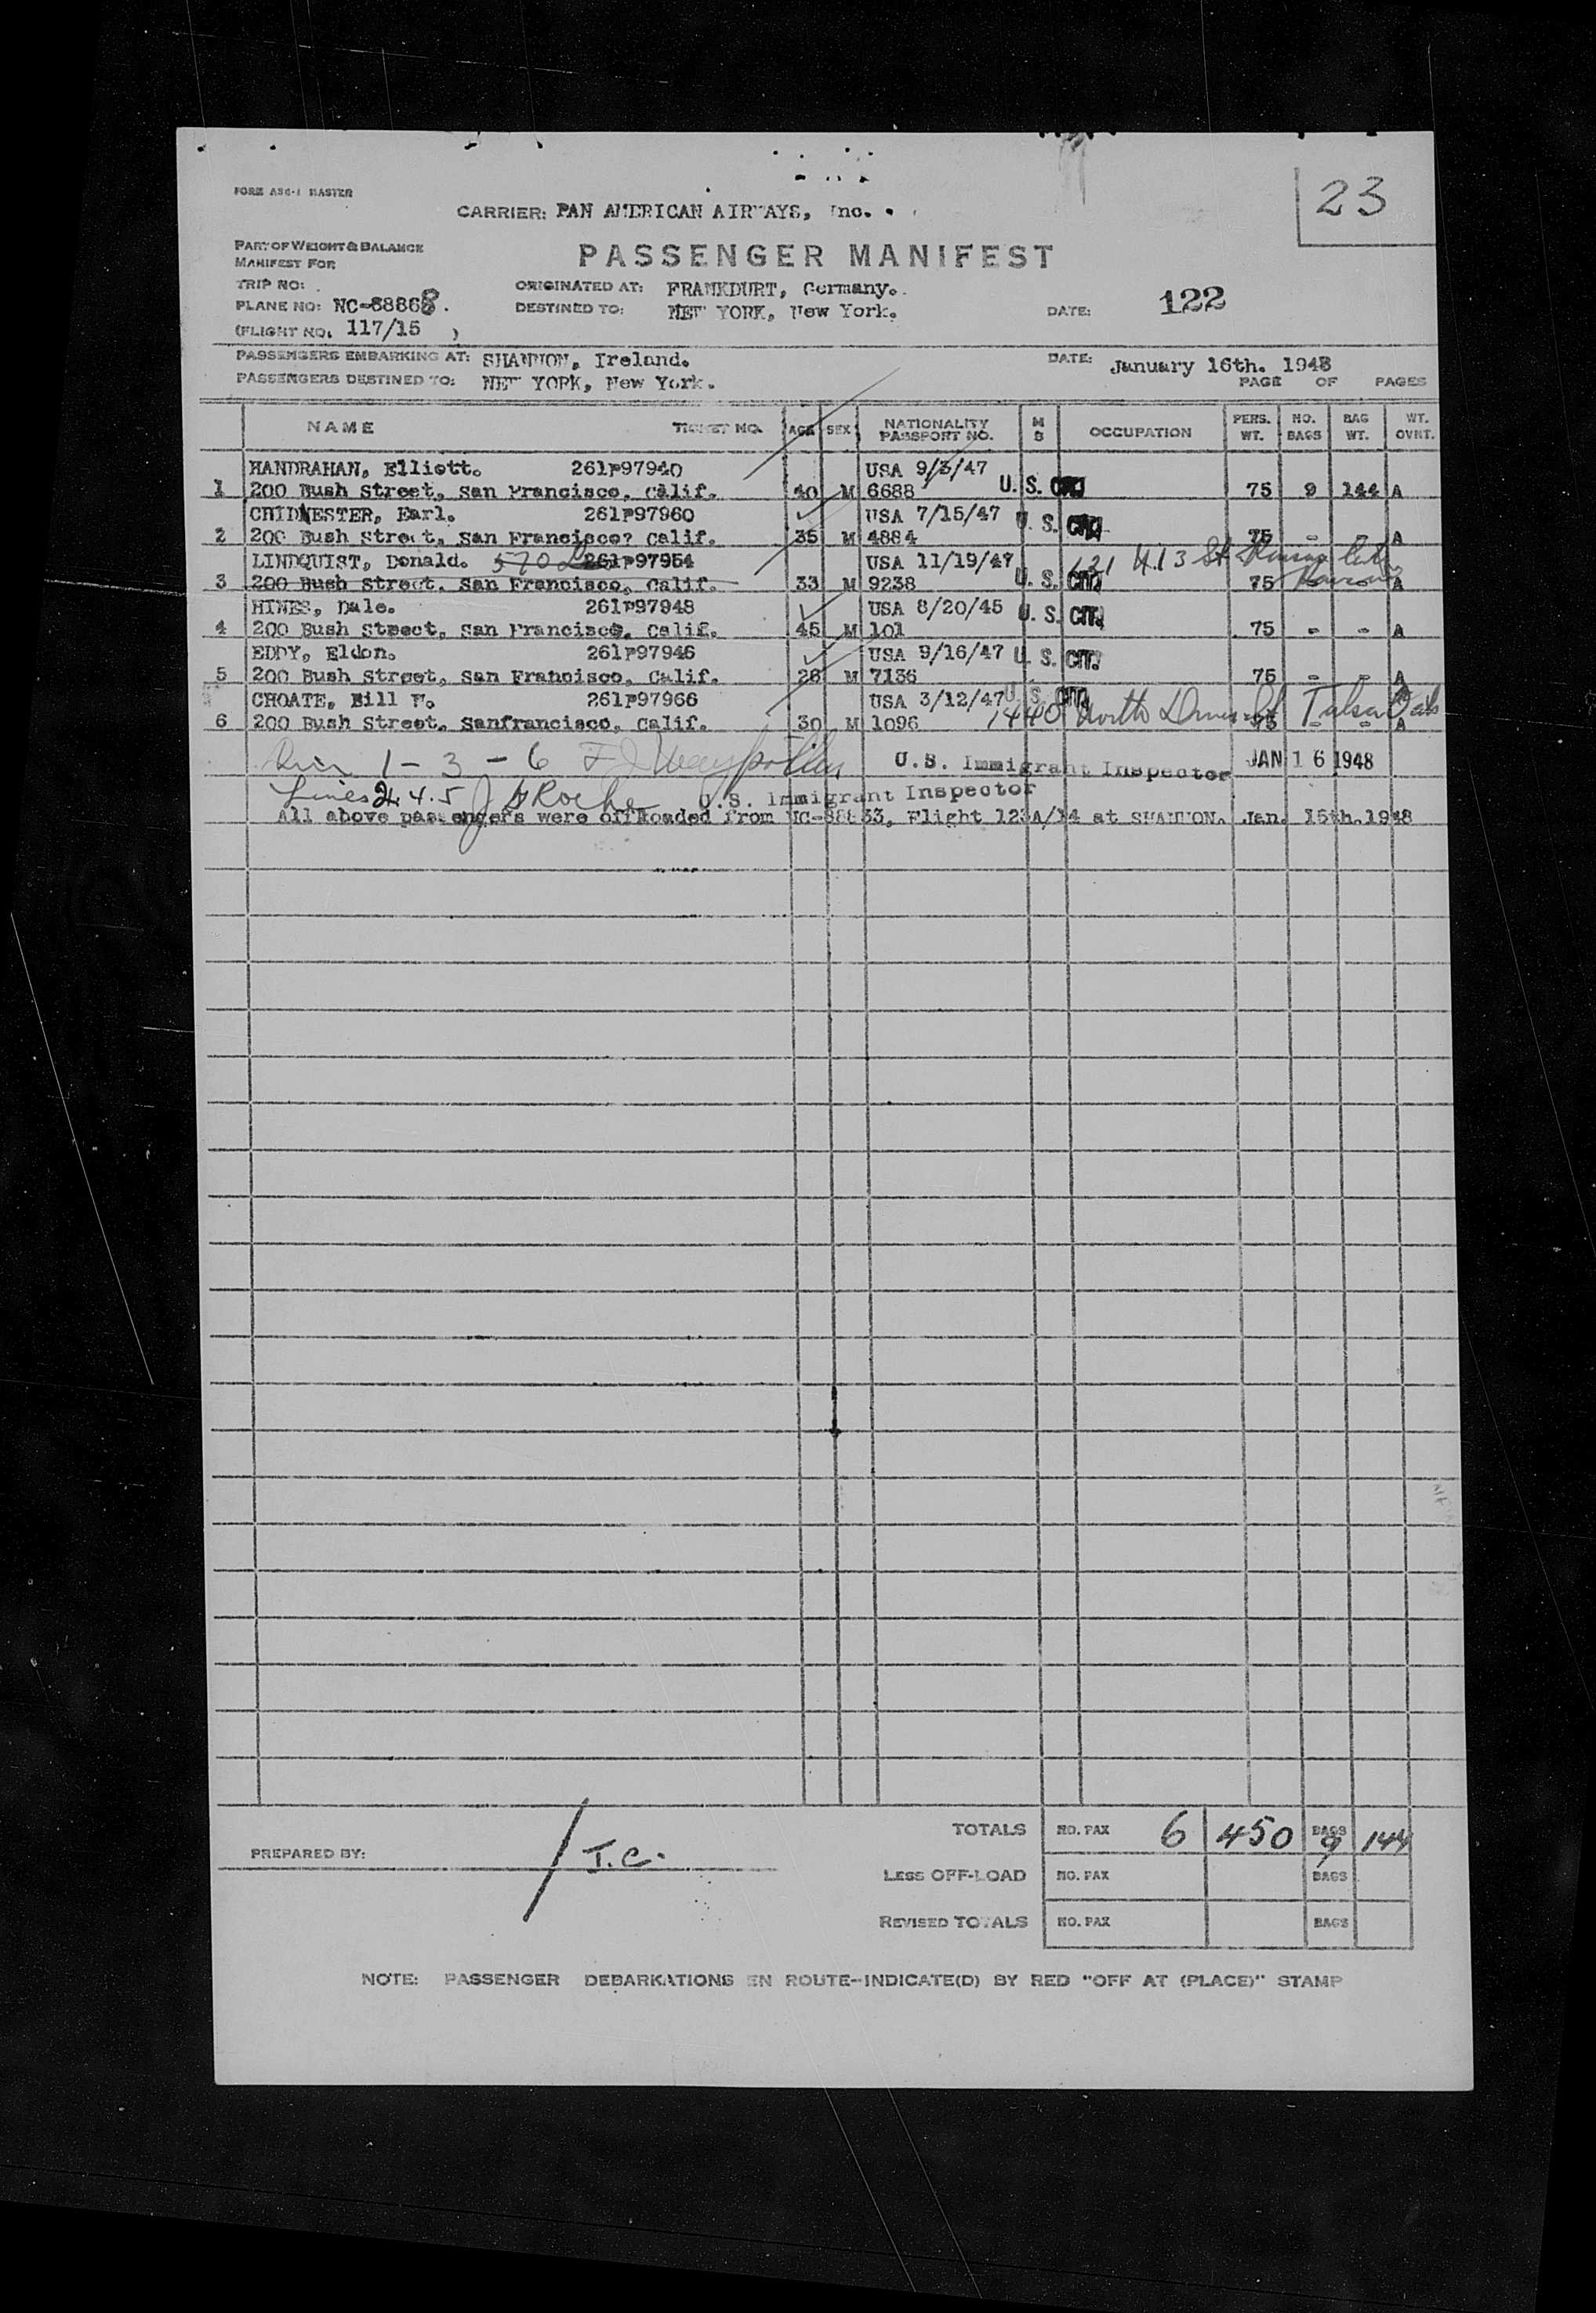 FORM ASC-1 MASTER
23
CARRIER: PAN AMERICAN AIRWAYS, Inc.
PART OF WEIGHT & BALANCE
MANIFEST FOR
PASSENGER MANIFEST
TRIP NO:
ORIGINATED AT: FRANKDURT, Germany.
PLANE NO: NC-88868.
DESTINED TO: NEW YORK, New York.
DATE: 122
(FLIGHT NO. 117/15 )
PASSENGERS EMBARKING AT: SHANNON, Ireland.
DATE: January 16th. 1948
PASSENGERS DESTINED TO: NEW YORK, New York.
PAGE OF PAGES
NAME TICKET NO. AGE SEX NATIONALITY PASSPORT NO. M S OCCUPATION PERS. WT. NO. BAGS BAG WT. WT. OVNT.
HANDRAHAN, Elliott. 261P97940 USA 9/3/47
1 200 Bush Street, San Francisco, Calif. 40 M 6688 U.S. CIT. 75 9 144 A
CHIDNESTER, Earl. 261P97960 USA 7/15/47
2 200 Bush Street, San Francisco? Calif. 35 M 4884 U.S. CIT. 75 - - A
LINDQUIST, Donald. 570 261P97954 USA 11/19/47 N.13 St Kansas City
3 200 Bush Street. San Francisco, Calif. 33 M 9238 U.S. CIT. 75 Kansas A
HINES, Dale. 261P97948 USA 8/20/45
4 200 Bush Street, San Francisco, Calif. 45 M 101 U.S. CIT. 75 - - A
EDDY, Eldon. 261P97946 USA 9/16/47
5 200 Bush Street, San Francisco, Calif. 28 M 7136 U.S. CIT. 75 - - A
CHOATE, Bill F. 261P97966 USA 3/12/47 U.S. CIT.
6 200 Bush Street, Sanfrancisco, Calif. 30 M 1096 1440 North St Tulsa Okla 75 - - A
1 - 3 - 6 U.S. Immigrant Inspector JAN 16 1948
Lines 2.4.5 J Roche U.S. Immigrant Inspector
All above passengers were offloaded from NC-88833, Flight 123A/14 at SHANNON. Jan. 15th.1948
TOTALS NO. PAX 6 450 BAGS 9 144
PREPARED BY: J.C.
LESS OFF-LOAD NO. PAX BAGS
REVISED TOTALS NO. PAX BAGS
NOTE: PASSENGER DEBARKATIONS EN ROUTE-INDICATE(D) BY RED "OFF AT (PLACE)" STAMP